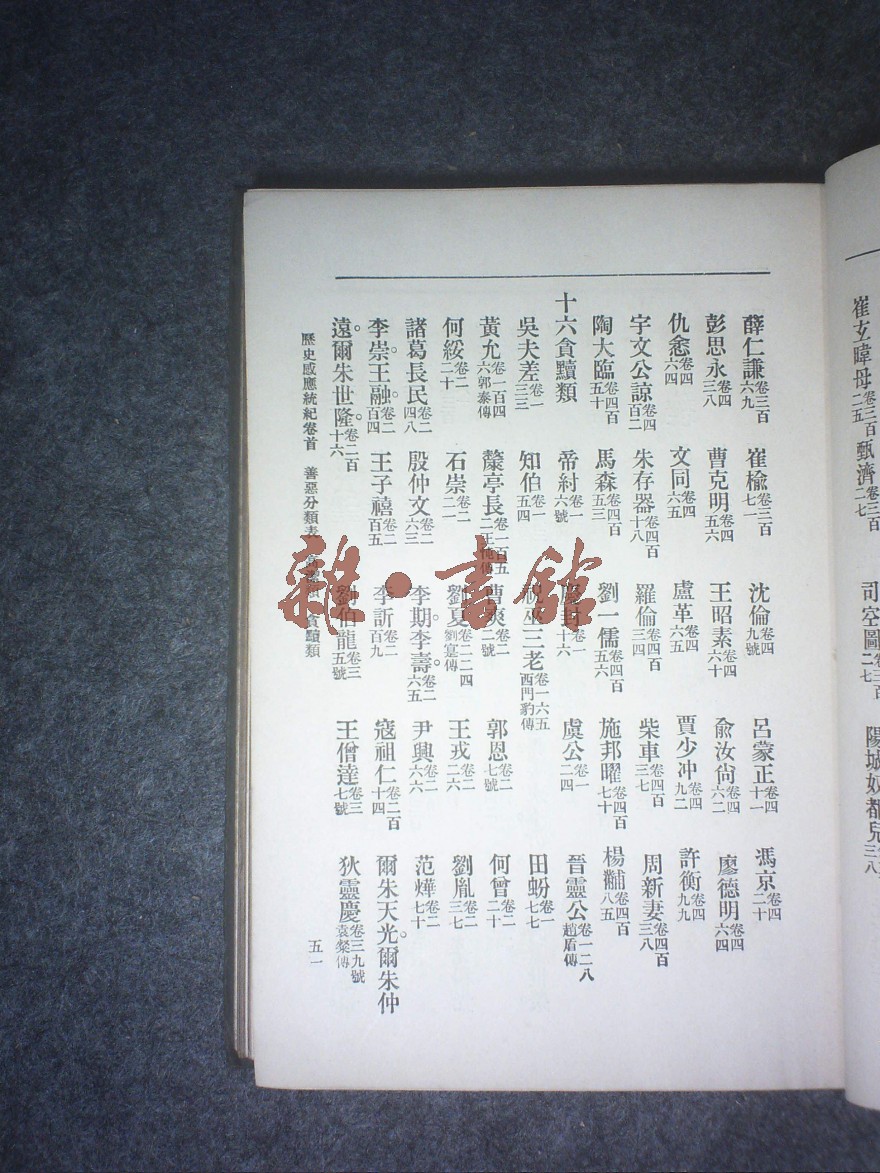 薛仁謙卷三百六九 崔棆卷三百七一 沈倫卷四九號 呂蒙正卷四十一 馮京卷四二十
彭思永卷四三八 曹克明卷四五六 王昭素卷四六十 俞汝尙卷四六二 廖德明卷四六四
仇悆卷四六四 文同卷四六五 盧革卷四六五 賈少冲卷四九二 許衡卷四九九
宇文公諒卷四百二 朱存器卷四百十八 羅倫卷四百三四 柴車卷四百三七 周新妻卷四百三八
陶大臨卷四百五十 馬森卷四百五三 劉一儒卷四百五六 施邦曜卷四百七十 楊黼卷四百八五
十六貪黷類 帝紂卷一六號 卷一十六 虞公卷一二四 晉靈公卷一二八趙盾傳
吳夫差卷一三三 知伯卷一五四 祝巫三老卷一六五西門豹傳 田蚡卷一七七
黃允卷一百四六郭泰傳 斄亭長卷一百五二 卷二二號 郭恩卷二七號 何曾卷二二十
何綏卷二二十 石崇卷二二一 劉夏卷二二四劉寔傳 王戎卷二二六 劉胤卷二三七
諸葛長民卷二四八 殷仲文卷二六三 李期。李壽。卷二六五 尹興卷二六六 范燁卷二七十
李崇。王融。卷二百四 王子禧卷二百五 李訢卷二百九 寇祖仁卷二百十四 爾朱天光。爾朱仲
遠。爾朱世隆。卷二百十六 劉伯龍卷三五號 王僧達卷三七號 狄靈慶卷三九號袁粲傳
歷史感應統紀卷首 善惡分類表 貪黷類 五一
崔玄暐母卷三百二五 甄濟卷三百二七 司空圖卷三百二七 陽城奴都兒三八
雜·書館